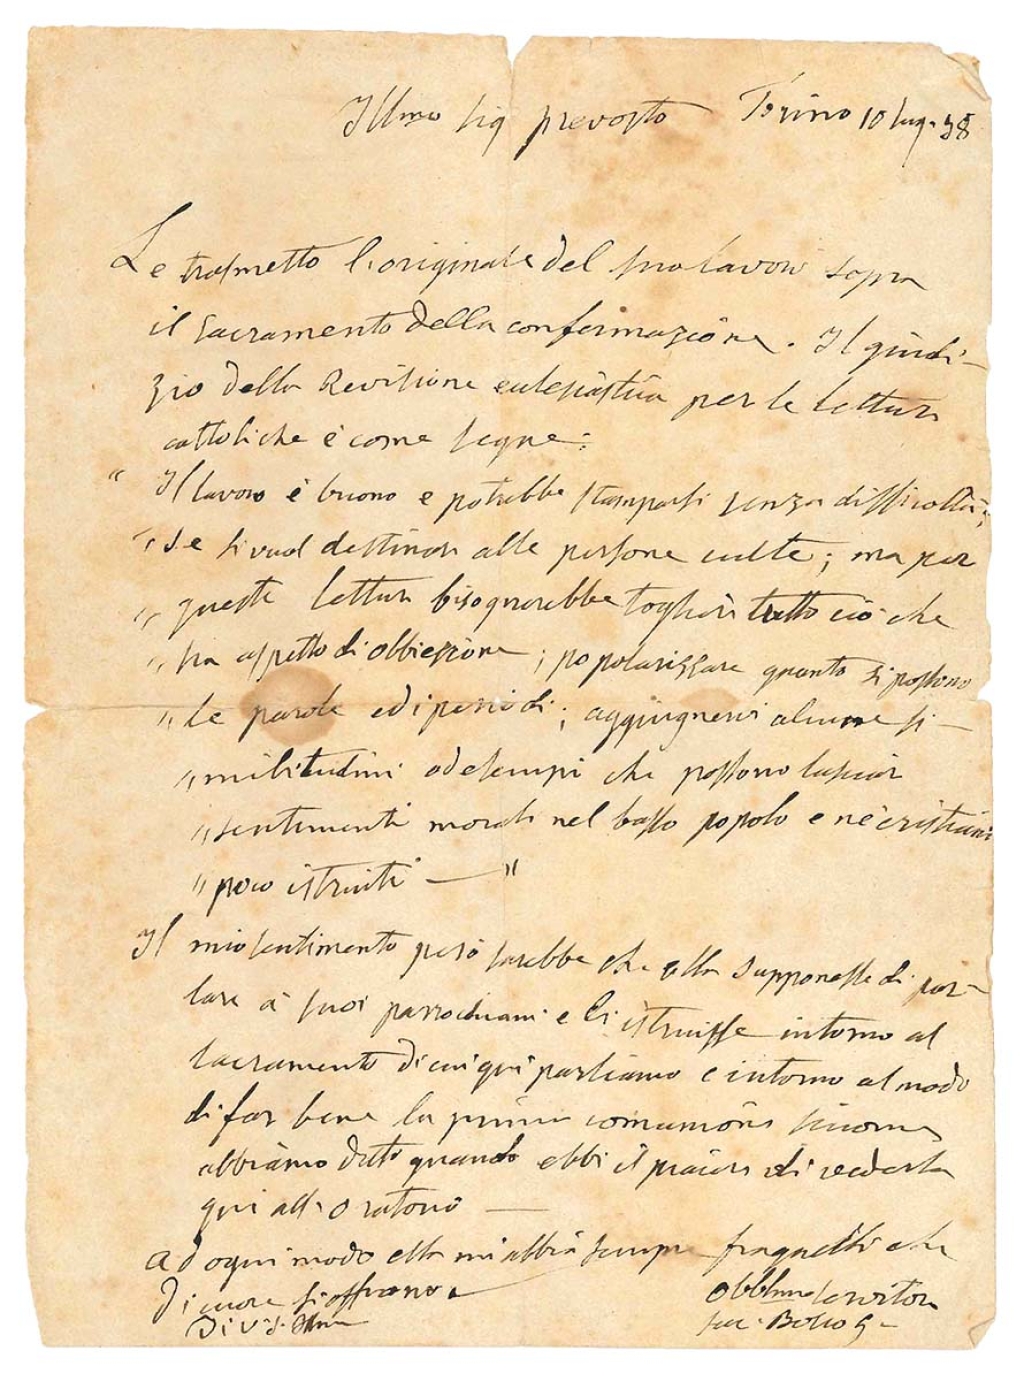 Ill.mo Sig prevosto Torino 10 lug. 58
Le trasmetto l'originale del suo lavoro sopra
il Sacramento della confermazione. Il giudi-
zio della Revisione ecclesiastica per le letture
cattoliche è come segue:
" Il lavoro è buono e potrebbe stamparsi senza difficoltà;
" se si vuol destinare alle persone culte; ma per
" queste letture bisognerebbe togliere tutto ciò che
" ha aspetto di obbiezione; popolarizzare quanto si possono
" le parole ed i periodi; aggiugnervi alcune si-
" militudini od esempi che possono lasciar
" sentimenti morali nel basso popolo e ne' cristiani
" poco istruiti — "
Il mio sentimento però sarebbe che ella supponesse di par-
lare a' suoi parrochiani e li istruisse intorno al
sacramento di cui qui parliamo e intorno al modo
di far bene la prima comunione siccome
abbiamo detto quando ebbi il piacere di vederla
qui all'oratorio —
Ad ogni modo ella mi abbia sempre fra quelli che
di cuore si offrono
Di V. S. Ill.ma
Obbl.mo servitore
Sac. Bosco G-